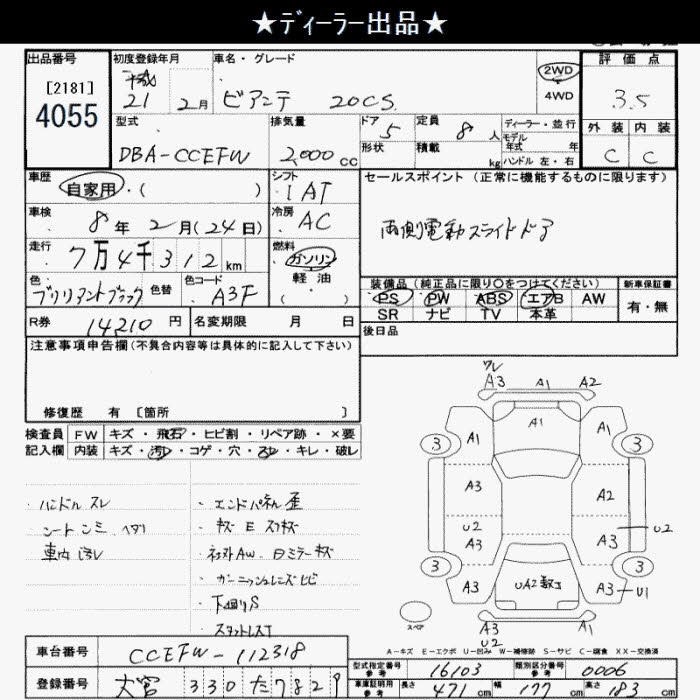 ★ディーラー出品★
出品番号
[2181]
4055
初度登録年月
平成
21 2月
車名・グレード
ビアンテ 20CS
2WD
4WD
評価点
3.5
外装 内装
C C
型式
DBA-CCEFW
排気量
2,000cc
ドア 5
形状
定員 8人
積載 kg
ディーラー・並行
モデル年式 年
ハンドル 左・右
車歴
自家用・( )
シフト
IAT
車検
8年 2月(24日)
冷房
AC
走行
7万4千312km
燃料
ガソリン
軽油
( )
色
ブリリアントブラック
色替
色コード
A3F
R券 14210円
名変期限 月 日
セールスポイント(正常に機能するものに限ります)
両側電動スライドドア
装備品(純正品に限り〇をつけてください)
PS PW ABS エアB AW
SR ナビ TV 本革
新車保証書
有・無
後日品
注意事項申告欄(不具合内容等は具体的に記入して下さい)
修復歴 有 [箇所 ]
検査員記入欄
FW キズ・飛石・ヒビ割・リペア跡・×要
内装 キズ・汚レ・コゲ・穴・スレ・キレ・破レ
・ハンドルスレ
・シートシミ ヘタリ
・車内汚レ
・エンドパネル歪
・キズE スリキズ
・ネジストAW Dミラーキズ
・ガーニッシュレンズヒビ
・下廻りS
・スタットレスT
ワレ
A3 A1 A2
A1
3 A1 A1 3
A3 A2
U2 U2
A3 A3
3 3
A3 UA2数コ A3 U1
スペア
A3 A1
U2
A-キズ E-エクボ U-凹み W-補修跡 S-サビ C-腐食 XX-交換済
車台番号
CCEFW-112318
登録番号
大宮 330 た 7829
型式指定番号 参考 16103
類別区分番号 参考 0006
車庫証明用 参考 長さ 471cm 幅 177cm 高さ 183cm